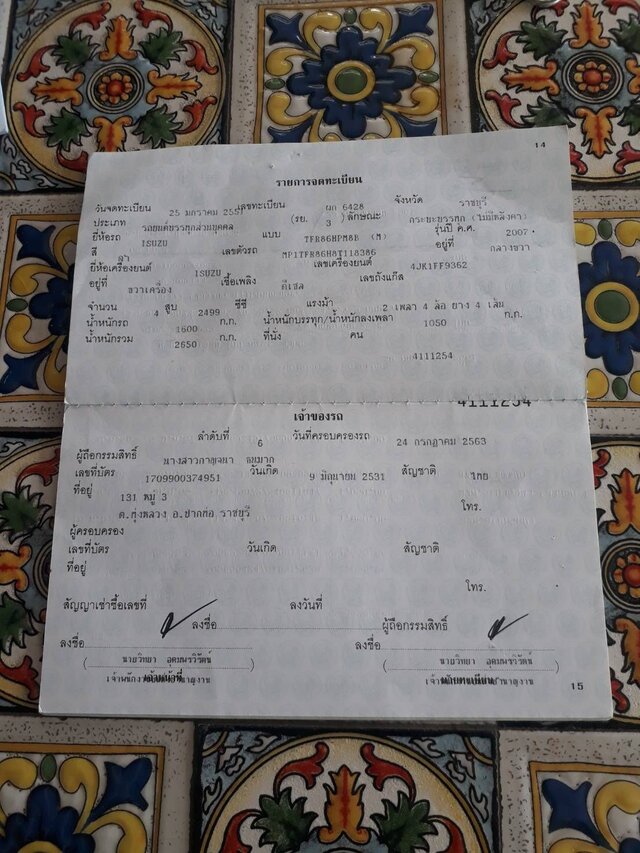 14
รายการจดทะเบียน
วันจดทะเบียน 25 มกราคม 2551 เลขทะเบียน ผก 6428 จังหวัด ราชบุรี
ประเภท รถยนต์บรรทุกส่วนบุคคล (รย. 3 ) ลักษณะ กระบะบรรทุก (ไม่มีหลังคา)
ยี่ห้อรถ ISUZU แบบ TFR86HPM8B (M) รุ่นปี ค.ศ. 2007
สี เลขตัวรถ MP1TFR86H8T118386 อยู่ที่ กลางขวา
ยี่ห้อเครื่องยนต์ ISUZU เลขเครื่องยนต์ 4JK1FF9362
อยู่ที่ ขวาเครื่อง เชื้อเพลิง ดีเซล เลขถังแก๊ส
จำนวน 4 สูบ 2499 ซีซี แรงม้า 2 เพลา 4 ล้อ ยาง 4 เส้น
น้ำหนักรถ 1600 ก.ก. น้ำหนักบรรทุก/น้ำหนักลงเพลา 1050 ก.ก.
น้ำหนักรวม 2650 ก.ก. ที่นั่ง คน
4111254
4111254
เจ้าของรถ
ลำดับที่ 6 วันที่ครอบครองรถ 24 กรกฎาคม 2563
ผู้ถือกรรมสิทธิ์ นางสาวกาญจนา
เลขที่บัตร 1709900374951 วันเกิด 9 มิถุนายน 2531 สัญชาติ ไทย
ที่อยู่ 131 หมู่ 3 โทร.
ต.ทุ่งหลวง อ.ปากท่อ ราชบุรี
ผู้ครอบครอง
เลขที่บัตร วันเกิด สัญชาติ
ที่อยู่
โทร.
สัญญาเช่าซื้อเลขที่ ลงวันที่
ลงชื่อ ผู้ถือกรรมสิทธิ์
ลงชื่อ ลงชื่อ
( นายวิทยา อุดมนรวิรัตน์ ) ( นายวิทยา อุดมนรวิรัตน์ )
15